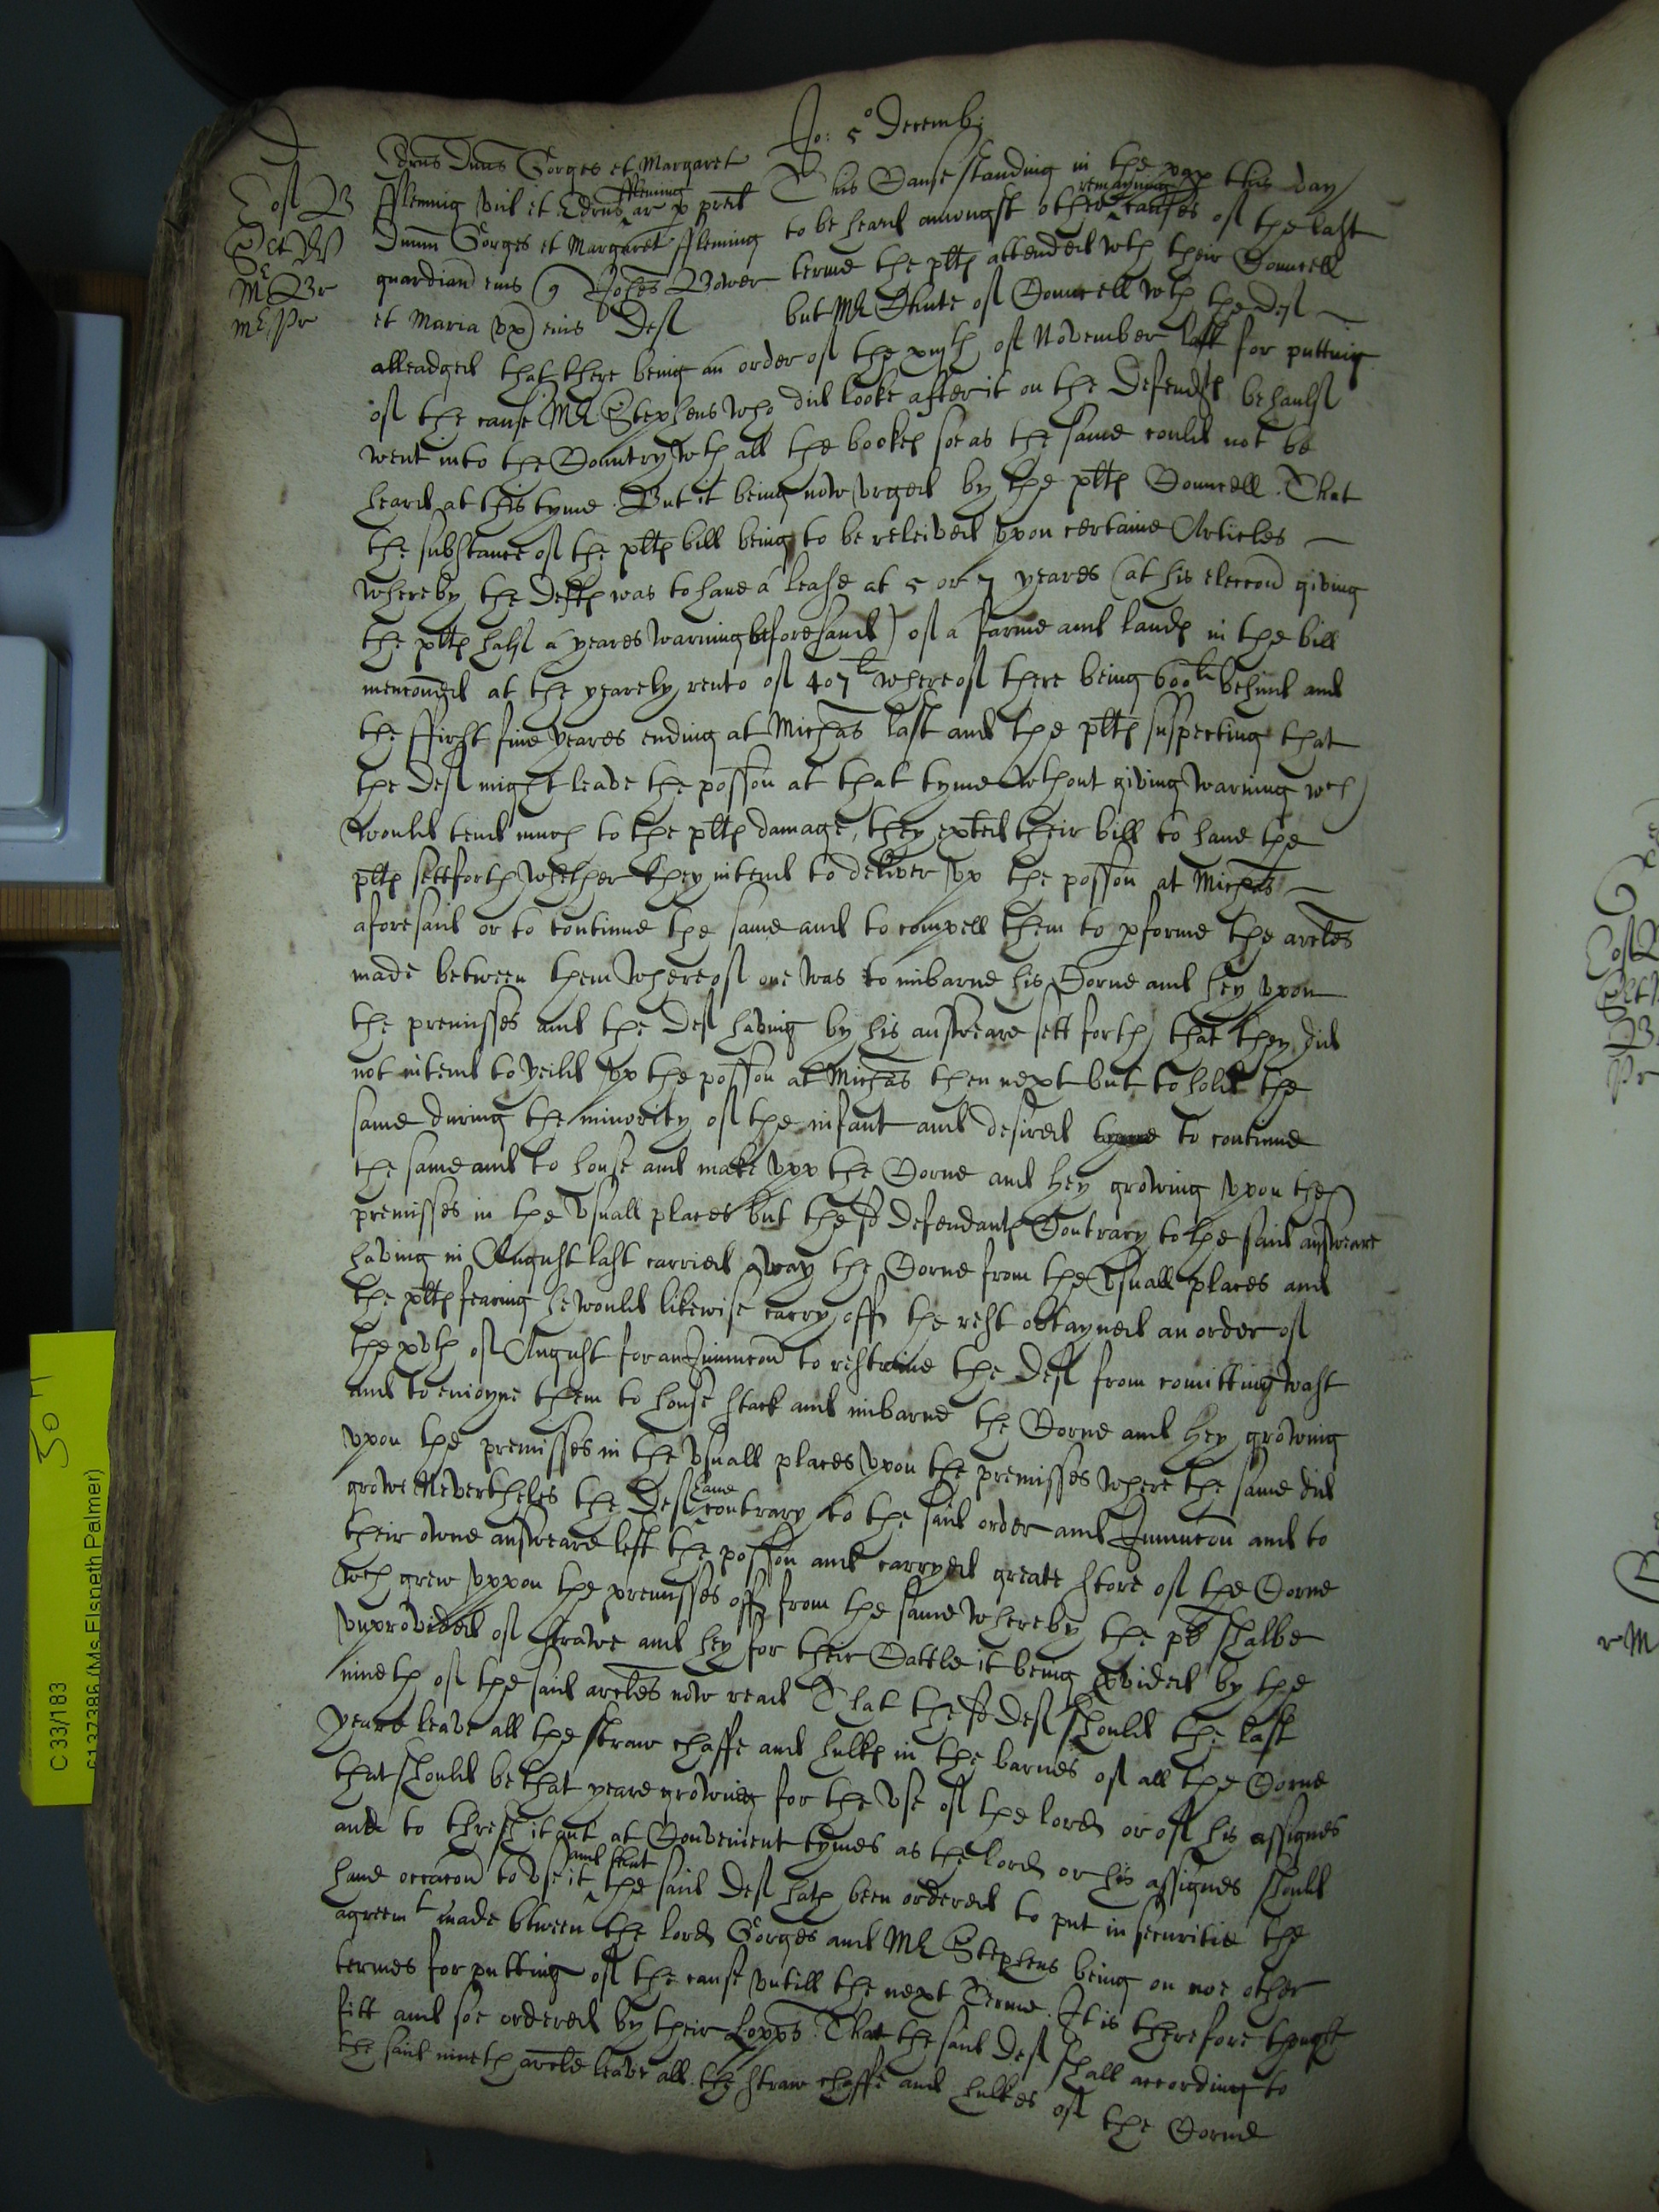 Jo: 5° Decemb:
Edrus Dnus Gorges et Margaret
Fflemming vid et Edrus Ffleming ar p pred
Dnum Gorges et Margaret Ffleming
guardian eius Johes Bower
et Maria vx eius Def
This Cause standing in the pap this day
to be heard amongst other remayning causes of the last
terme the pltes attended wth their Councell
but Mr Chute of Councell wth the Def
alleadged that there being an order of the xviijth of November last for putting
of the cause Mr Stephens who did looke after it on the Defendtes behaulf
went into the Country wth all the bookes soe as the same could not be
heard at this tyme. But it being now vrged by the pltes Councell. That
the substance of the pltes bill being to be releived vpon certaine Articles
whereby the Deftes was to haue a lease at 5 or 7 yeares (at his eleccon giving
the pltes half a yeares warning beforehand) of a farme and landes in the bill
menconed at the yearely rento of 407l whereof there being 600li behind and
the ffirst fiue yeares ending at Michas last and the pltes suspecting that
the Def might leave the posson at that tyme wthout giving warning wch
would tend much to the pltes damage, they exhted their bill to haue the
pltes settforth whether they intend to deliver vp the posson at Michas
aforesaid or to continue the same and to compell them to pforme the arcles
made between them whereof one was to inbarne his Corne and hey vpon
the premisses and the Def having by his answeare sett forth that they did
not intend to yeild vp the posson at Michas then next but to hold the
same during the minority of the infant and desired to continue
the same and to house and make vpp the Corne and hey growing vpon the
premisses in the vsuall places but the sd defendantes Contrary to the said answeare
having in August last carried away the Corne from the vsuall places and
the pltes fearing he would likewise carry off the rest obtayned an order of
the xvth of August for an Iniunccon to restraine the Def from comitting wast
and to enioyne them to house stack and inbarne the Corne and hey growing
vpon the premisses in the vsuall places vpon the premisses where the same did
growe Neverthelesse the Def haue contrary to the said order and Iniuncon and to
their owne answeare left the posson and carryed greate store of the Corne
wch grew vppon the premisses off from the same whereby the plt shalbe
vnprovided of strawe and hey for their Cattle it being pvided by the
nineth of the said arcles now read That the sd Def should the last
yeare leave all the straw chaffe and hulkes in the barnes of all the Corne
that should be that yeare growing for the vse of the lord or of his assignes
and to thresh it out at Convenient tymes as the lord or his assignes should
haue occacon to vse it and that the said Def hath been ordered to put in securitie the
agreemt made between the lord Gorges and Mr Stephens being on noe other
termes for putting of the cause vntill the next Terme. It is therefore thought
fitt and soe ordered by their Lopps. That the said Def shall according to
the said nineth arcle leave all the straw chaffe and hulkes of the Corne
Mr Br
Mr Pr
C 33/183
(Ms Elspeth Palmer)